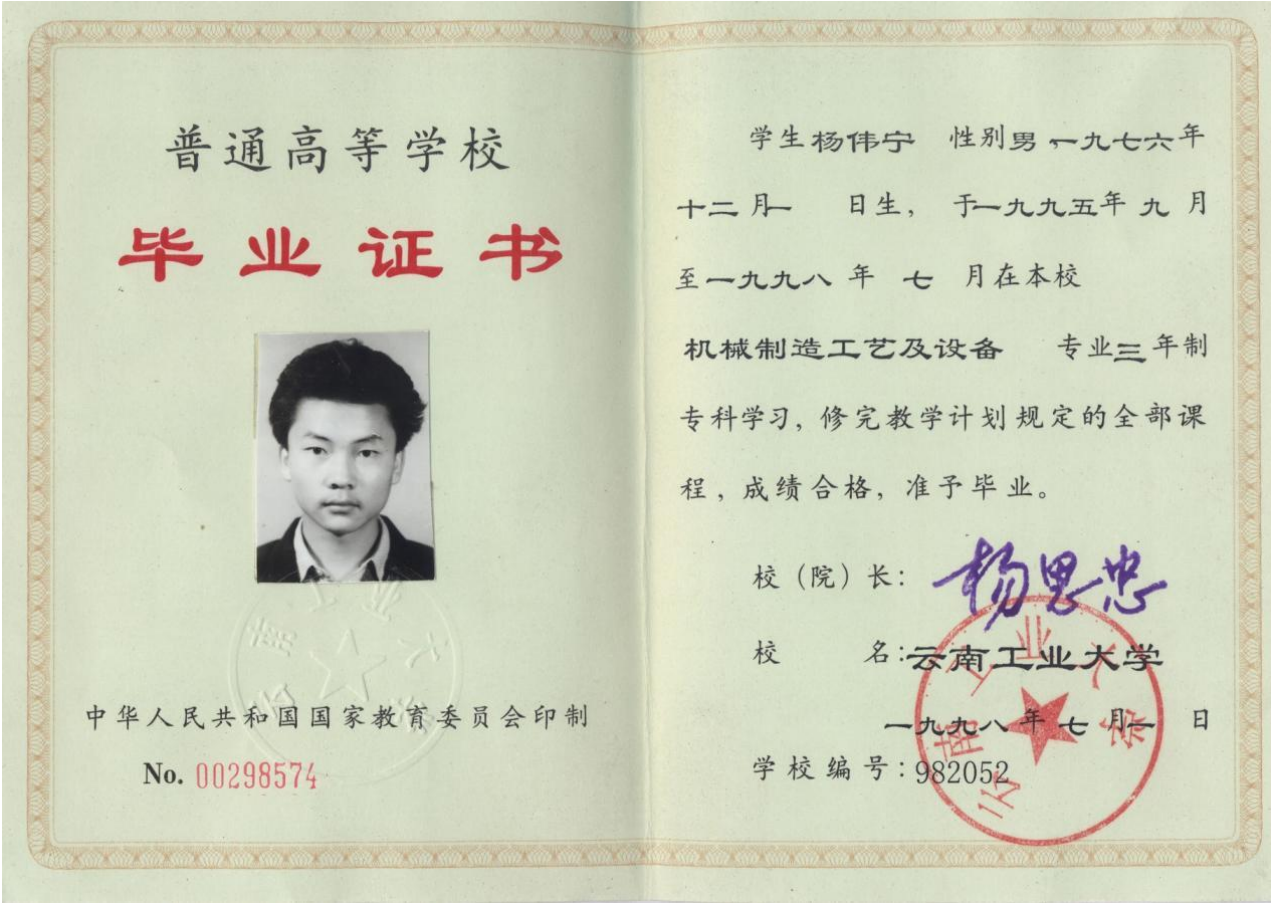 普通高等学校
毕业证书
中华人民共和国国家教育委员会印制
No. 00298574
学生杨伟宁 性别男 一九七六年
十二月一 日生, 于一九九五年 九 月
至一九九八 年 七 月在本校
机械制造工艺及设备 专业三年制
专科学习, 修完教学计划规定的全部课
程, 成绩合格, 准予毕业。
校(院)长: 杨思忠
校 名: 云南工业大学
一九九八年七月一 日
学校编号: 982052
云南工业大学
云南工业大学